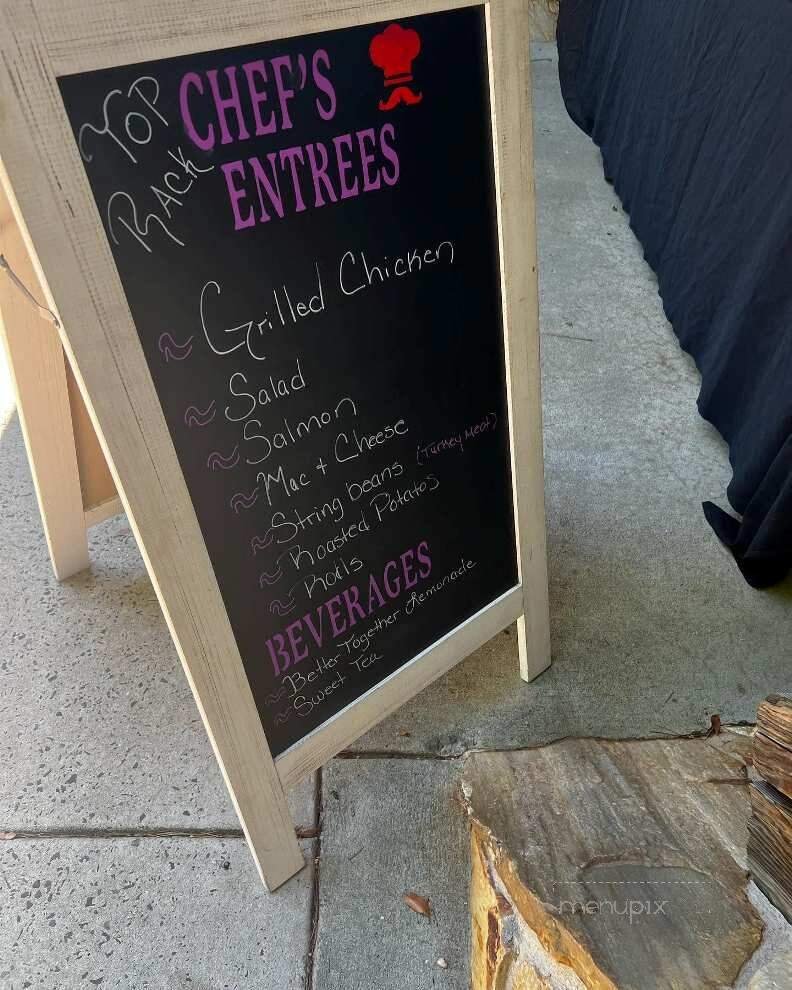 Top Rack
CHEF'S
ENTREES
~ Grilled Chicken
~ Salad
~ Salmon
~ Mac + Cheese
~ String beans (Turkey Meat)
~ Roasted Potatos
~ Rolls
BEVERAGES
~ Better Together Lemonade
~ Sweet Tea
menupix